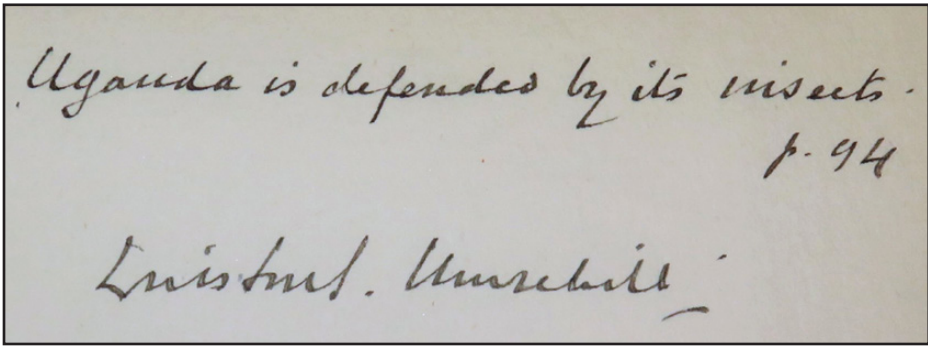 Uganda is defended by its insects.
p. 94
Winston S. Churchill